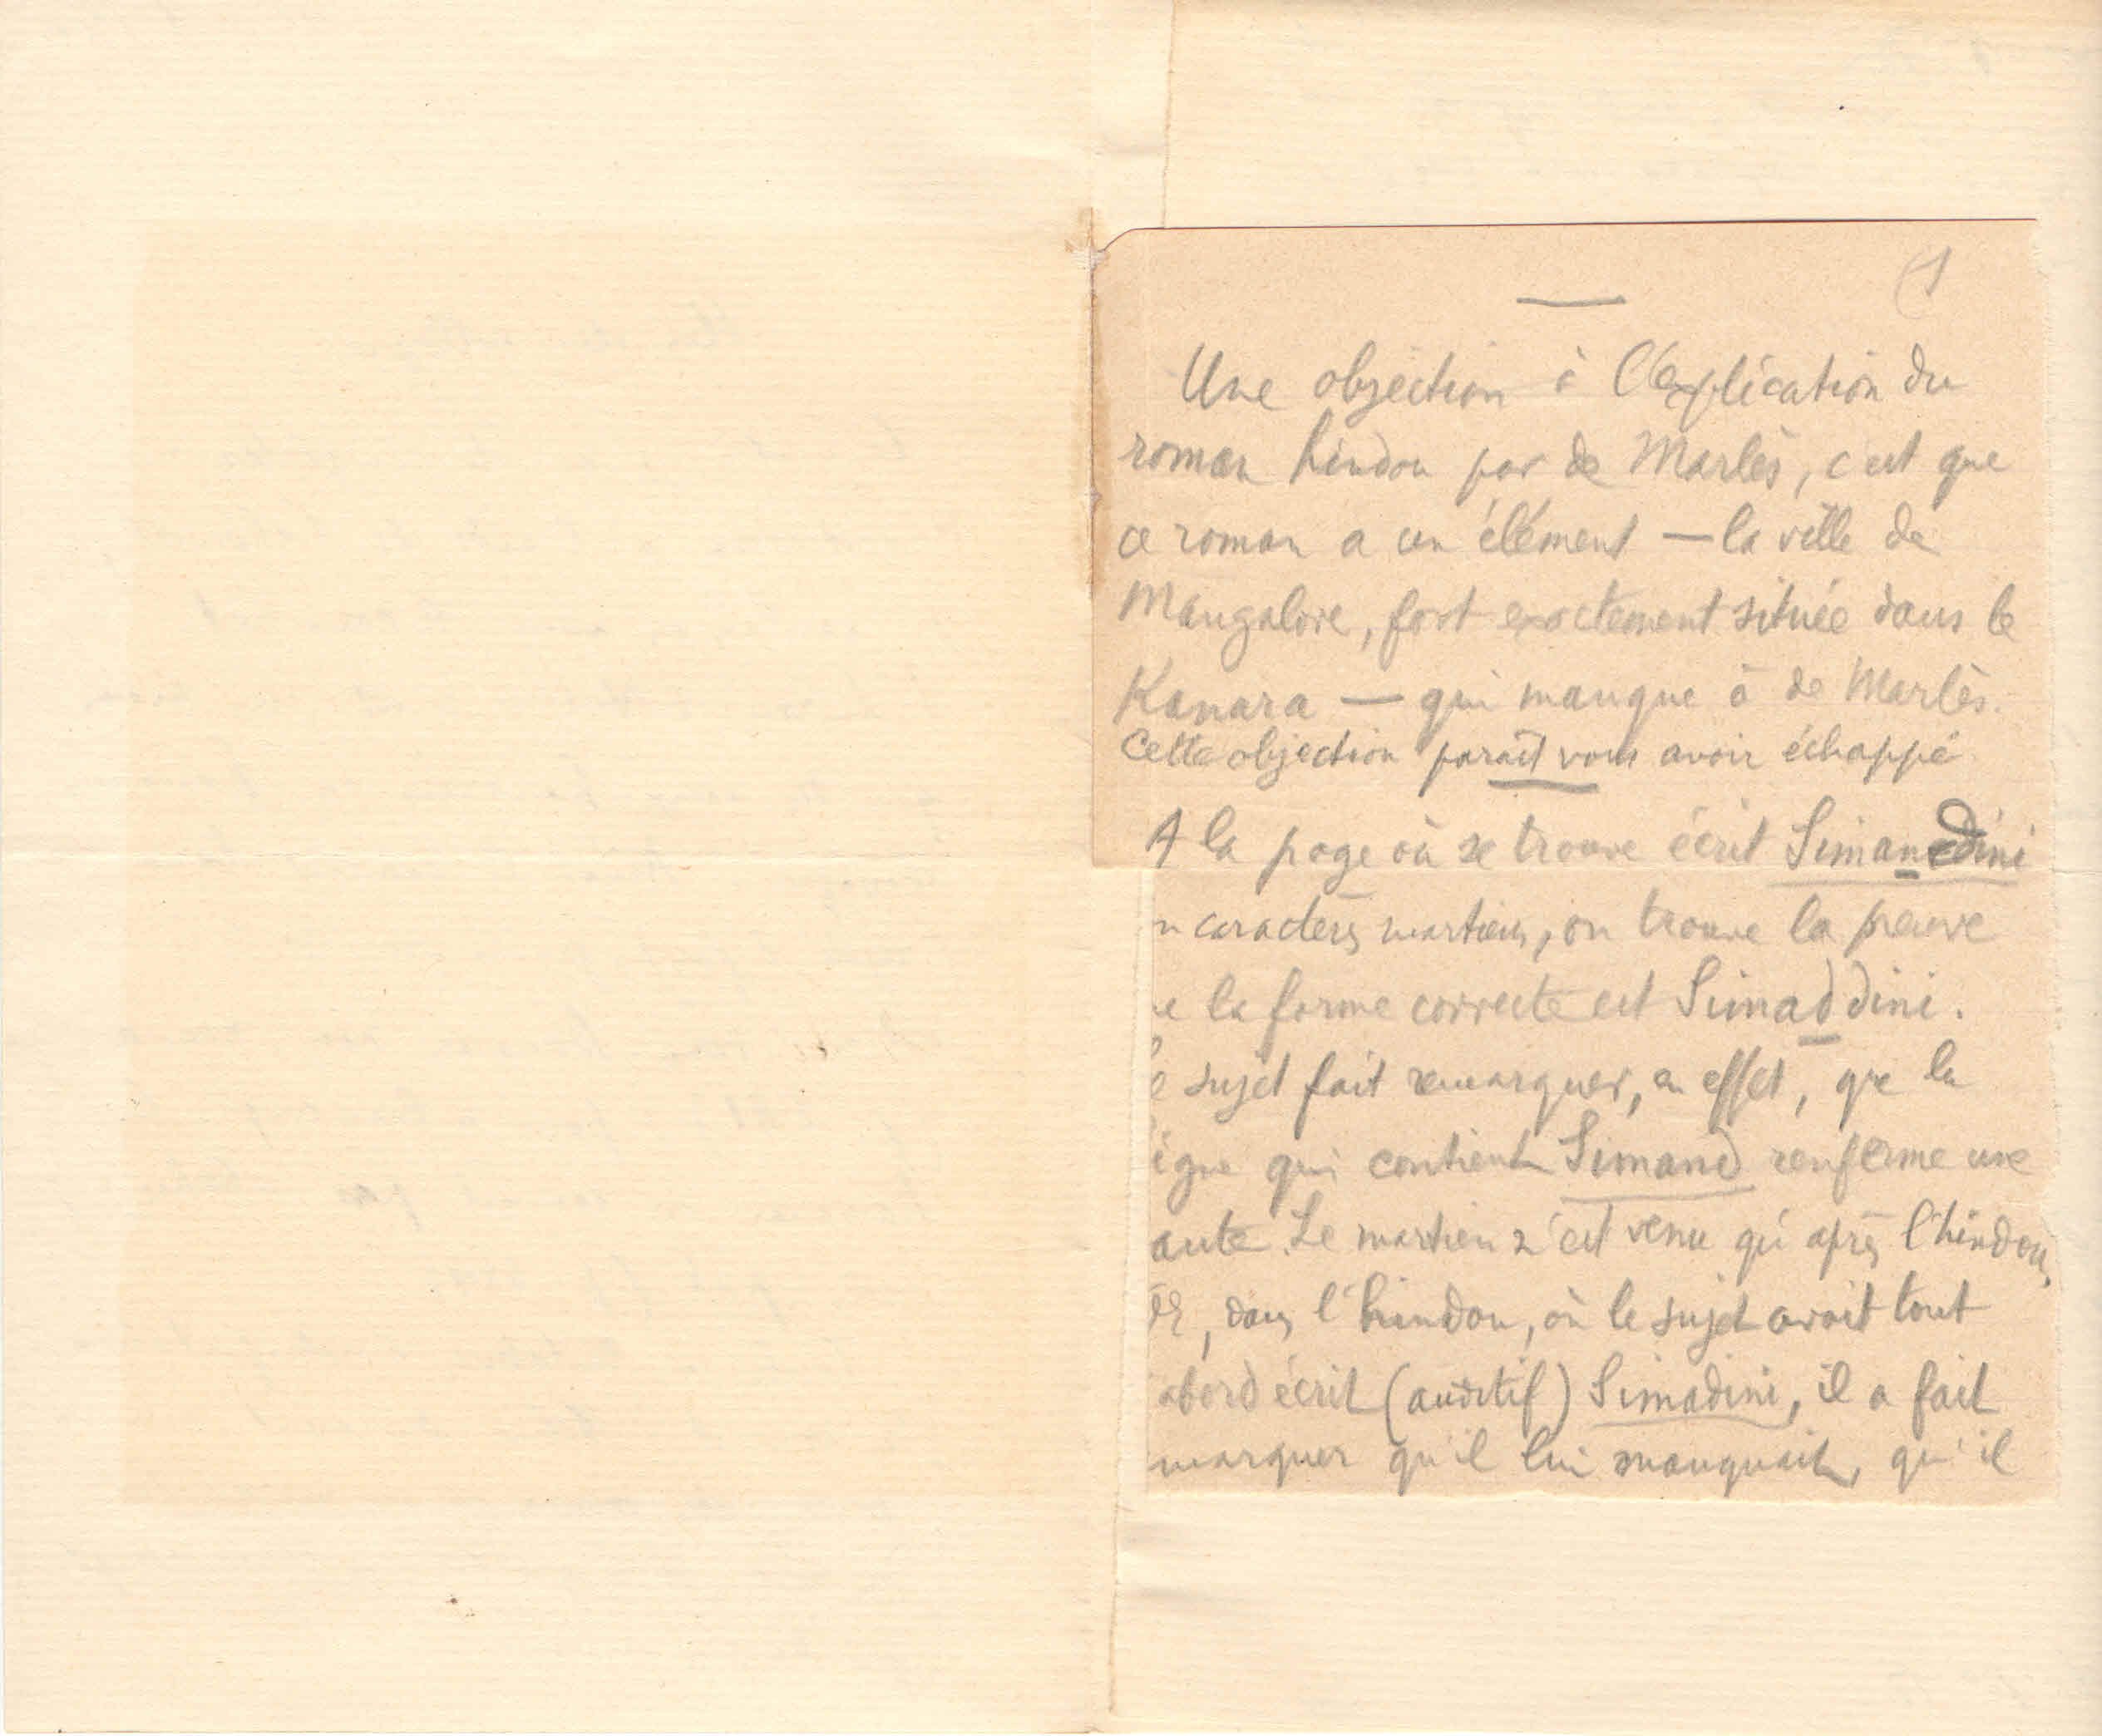 1
Une objection à l'explication du
roman hindou par de Marlès, c'est que
ce roman a un élément — la ville de
Mangalore, fort exactement située dans le
Kanara — qui manque à de Marlès.
Cette objection paraît vous avoir échappé
A la page où se trouve écrit Simandini
n caractères martiens, on trouve la preuve
e la forme correcte est Simaddini.
e sujet fait remarquer, en effet, que la
igne qui contient Simand renferme une
aute. Le martien n'est venu qu'après l'hindou,
or, dans l'hindou, où le sujet avait tout
abord écrit (auditif) Simadini, il a fait
marquer qu'il lui manquait, qu'il